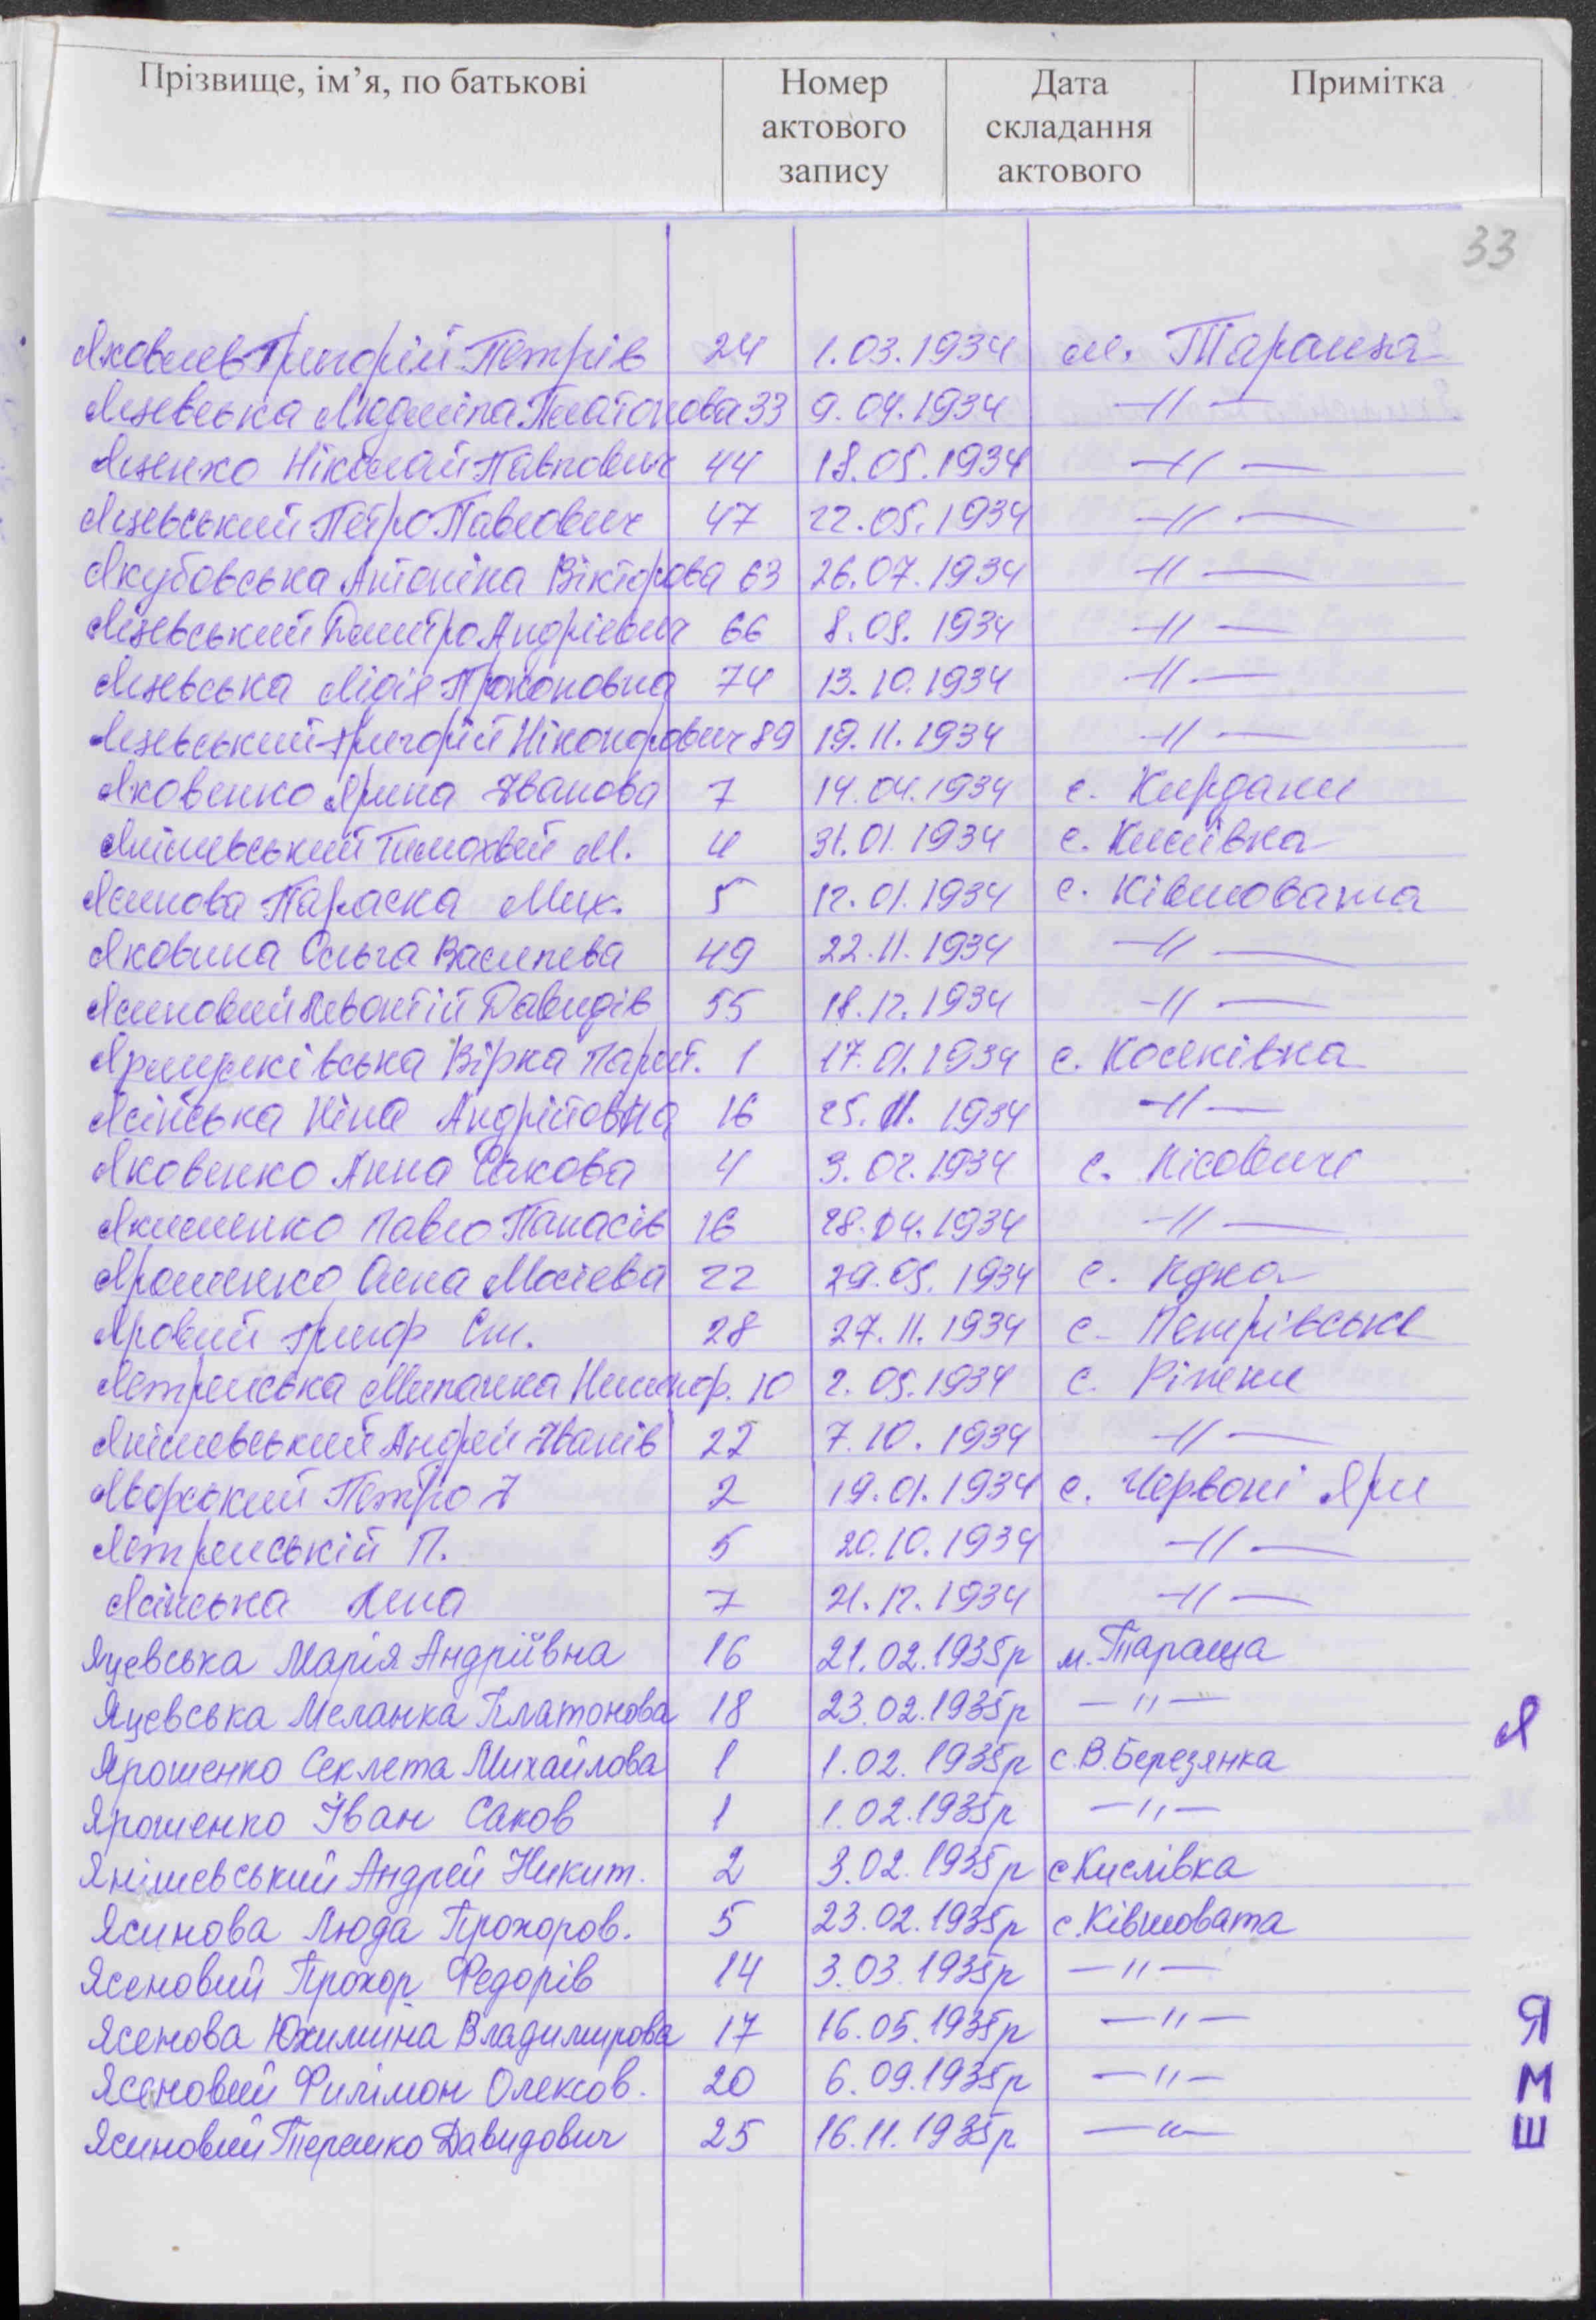 Прізвище, ім’я, по батькові Номер актового запису Дата складання актового Примітка
33
Яковлев Григорій Петрів 24 1.03.1934 м. Тараща
Яцевська Людміла Платонова 33 9.04.1934 -//-
Яценко Ніколай Павлович 44 18.05.1934 -//-
Яцевський Петро Павлович 47 22.05.1934 -//-
Якубовська Антоніна Вікторова 63 26.07.1934 -//-
Яцевський Дмитро Андрієвич 66 8.08.1934 -//-
Яцевська Лідія Прокоповна 74 13.10.1934 -//-
Яцевський Григорій Ніконорович 89 19.11.1934 -//-
Яковенко Ярина Іванова 7 14.04.1934 с. Кирдани
Янішевський Тимохвей М. 4 31.01.1934 с. Кислівка
Ясинова Параска Мих. 5 12.01.1934 с. Ківшовата
Яковина Ольга Василева 49 22.11.1934 -//-
Ясиновий Левонтій Давидів 55 18.12.1934 -//-
Вірка 1 17.01.1934 с. Косяківка
Ясінська Ніна Андрійовна 16 25.11.1934 -//-
Яковенко Анна Сакова 4 3.02.1934 с. Лісовичі
Якименко Павло Панасів 16 28.04.1934 -//-
Ярошенко Олена Мосієва 22 29.05.1934 с. Лука
Яровий Григ Ст. 28 27.11.1934 с. Петрівське
Ястремська Миланка Никиф. 10 2.05.1934 с. Ріжки
Янішевський Андрей Іванів 22 7.10.1934 -//-
Яворський Петро І 2 19.01.1934 с. Червоні Яри
Ястремській П. 5 20.10.1934 -//-
Ясінська Лена 7 21.12.1934 -//-
Яцевська Марія Андріївна 16 21.02.1935р м. Тараща
Яцевська Меланка Платонова 18 23.02.1935р -//-
Я
Ярошенко Секлета Михайлова 1 1.02.1935р с. В. Березянка
Ярошенко Іван Саков 1 1.02.1935р -//-
Янішевський Андрей Никит. 2 3.02.1935р с Кислівка
Ясинова Люда Прохоров. 5 23.02.1935р с. Ківшовата
Ясеновий Прохор Федорів 14 3.03.1935р -//-
Ясенова Юхимина Владимирова 17 16.05.1935р -//-
Я
Ясеновий Филімон Олексов. 20 6.09.1935р -//-
М
Ясиновий Терешко Давидович 25 16.11.1935р -//-
Ш